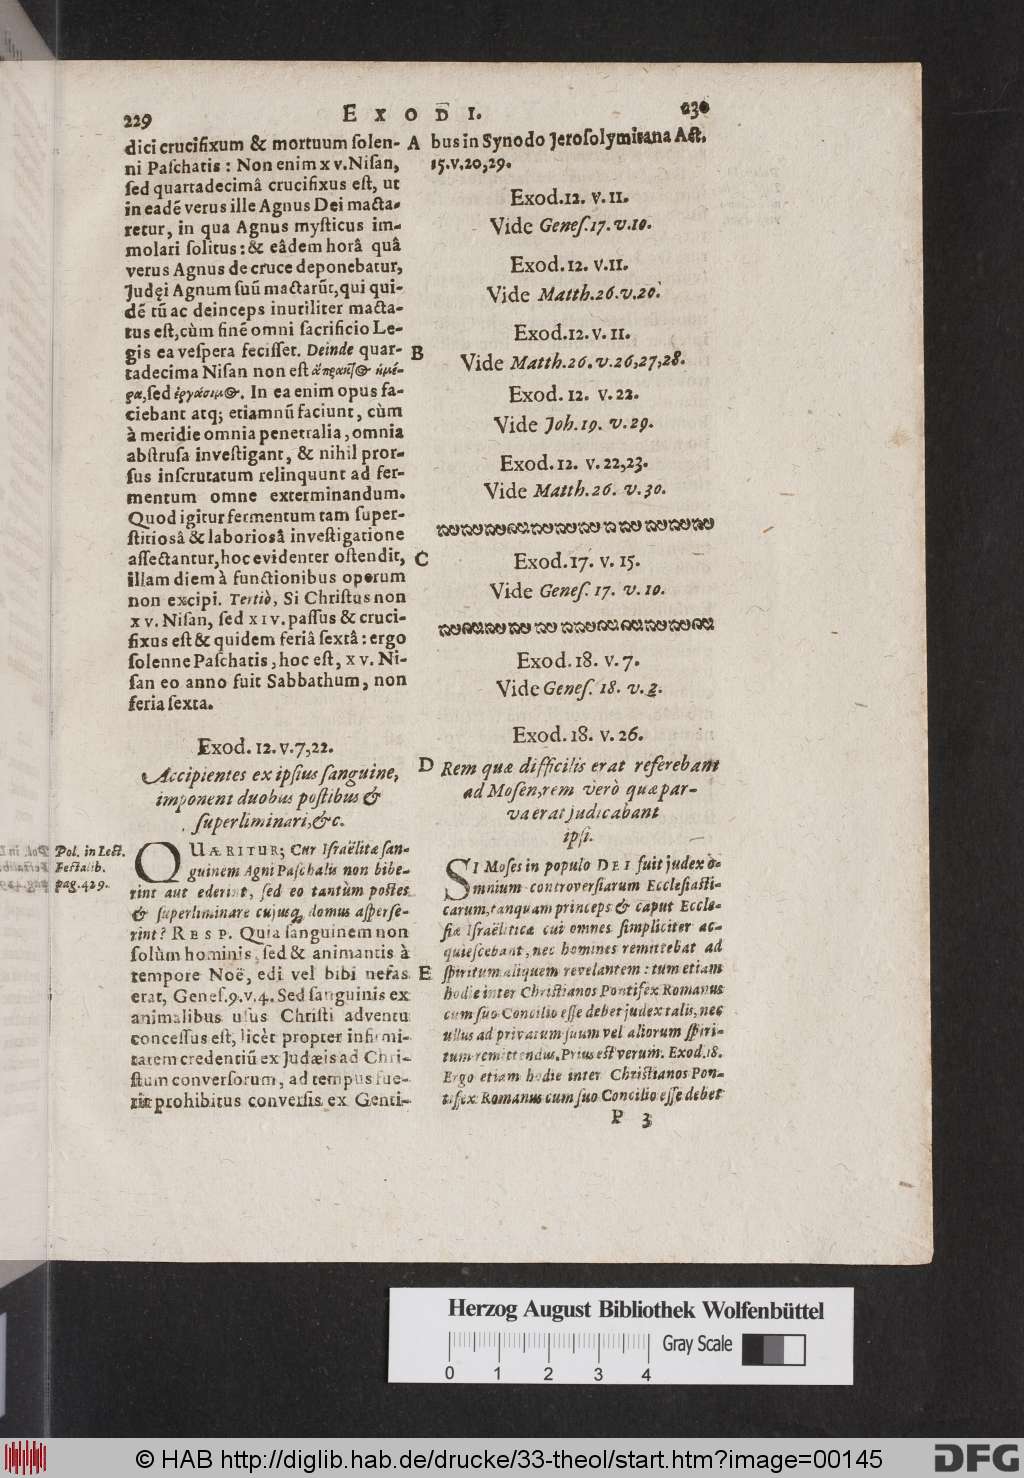 229
EXODI.
230
dici crucifixum & mortuum ſolen-
ni Paſchatis: Non enim xv. Niſan,
ſed quartadecimâ crucifixus eſt, ut
in eadē verus ille Agnus Dei macta-
retur, in qua Agnus myſticus im-
molari ſolitus: & eâdem horâ quâ
verus Agnus de cruce deponebatur,
Judęi Agnum ſuū mactarūt, qui qui-
dē tū ac deinceps inutiliter macta-
tus eſt, cùm finē omni ſacrificio Le-
gis ea veſpera feciſſet. Deinde quar-
tadecima Niſan non eſt
, ſed In ea enim opus fa-
ciebant atq; etiamnū faciunt, cùm
à meridie omnia penetralia, omnia
abſtruſa inveſtigant, & nihil pror-
ſus inſcrutatum relinquunt ad fer-
mentum omne exterminandum.
Quod igitur fermentum tam ſuper-
ſtitiosâ & laboriosâ inveſtigatione
aſſectantur, hoc evidenter oſtendit,
illam diem à functionibus operum
non excipi. Tertiò, Si Chriſtus non
xv. Niſan, ſed xiv. paſſus & cruci-
fixus eſt & quidem feriâ ſextâ: ergo
ſolenne Paſchatis, hoc eſt, xv. Ni-
ſan eo anno fuit Sabbathum, non
feria ſexta.
Exod. 12. v. 7, 22.
Accipientes ex ipſius ſanguine,
imponent duobus poſtibus &
ſuperliminari, &c.
Pol. in Lect.
Feſtalib.
pag. 429.
QUÆRITUR; Cur Iſraëlitæ ſan-
guinem Agni Paſchalis non bibe-
rint aut ederint, ſed eo tantùm poſtes
& ſuperliminare cujusq; domus aſperſe-
rint? RESP. Quia ſanguinem non
ſolùm hominis, ſed & animantis à
tempore Noë, edi vel bibi nefas
erat, Geneſ. 9. v. 4. Sed ſanguinis ex
animalibus uſus Chriſti adventu
conceſſus eſt, licèt propter infirmi-
tatem credentiū ex Judæis ad Chri-
ſtum converſorum, ad tempus fue-
rit prohibitus converſis ex Genti-
A
B
C
D
E
bus in Synodo Jeroſolymitana Act.
15. v. 20, 29.
Exod. 12. v. 11.
Vide Geneſ. 17. v. 10.
Exod. 12. v. 11.
Vide Matth. 26. v. 20.
Exod. 12. v. 11.
Vide Matth. 26. v. 26, 27, 28.
Exod. 12. v. 22.
Vide Joh. 19. v. 29.
Exod. 12. v. 22, 23.
Vide Matth. 26. v. 30.
Exod. 17. v. 15.
Vide Geneſ. 17. v. 10.
Exod. 18. v. 7.
Vide Geneſ. 18. v. 2.
Exod. 18. v. 26.
Rem quæ difficilis erat referebant
ad Moſen, rem verò quæ par-
va erat judicabant
ipſi.
SI Moſes in populo DEI fuit judex o-
mnium controverſiarum Eccleſiaſti-
carum, tanquam princeps & caput Eccle-
ſiæ Iſraëliticæ cui omnes ſimpliciter ac-
quieſcebant, nec homines remittebat ad
ſpiritum aliquem revelantem: tum etiam
hodie inter Chriſtianos Pontifex Romanus
cum ſuo Concilio eſſe debet judex talis, nec
ullus ad privatum ſuum vel aliorum ſpiri-
tum remittendus. Prius eſt verum. Exod. 18.
Ergo etiam hodie inter Chriſtianos Pon-
tifex Romanus cum ſuo Concilio eſſe debet
P 3
Herzog August Bibliothek Wolfenbüttel
Gray Scale
0 1 2 3 4
© HAB http://diglib.hab.de/drucke/33-theol/start.htm?image=00145
DFG